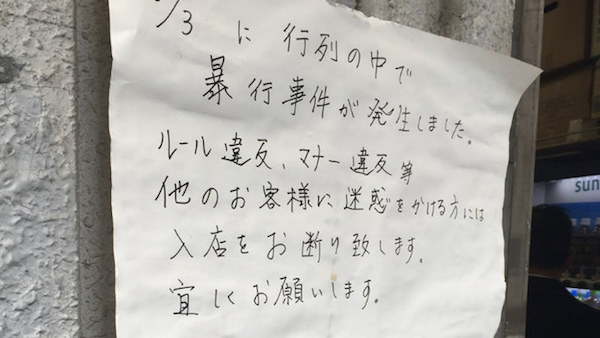 /3 に行列の中で
暴行事件が発生しました。
ルール違反、マナー違反等
他のお客様に迷惑をかける方には
入店をお断り致します。
宜しくお願いします。
sun